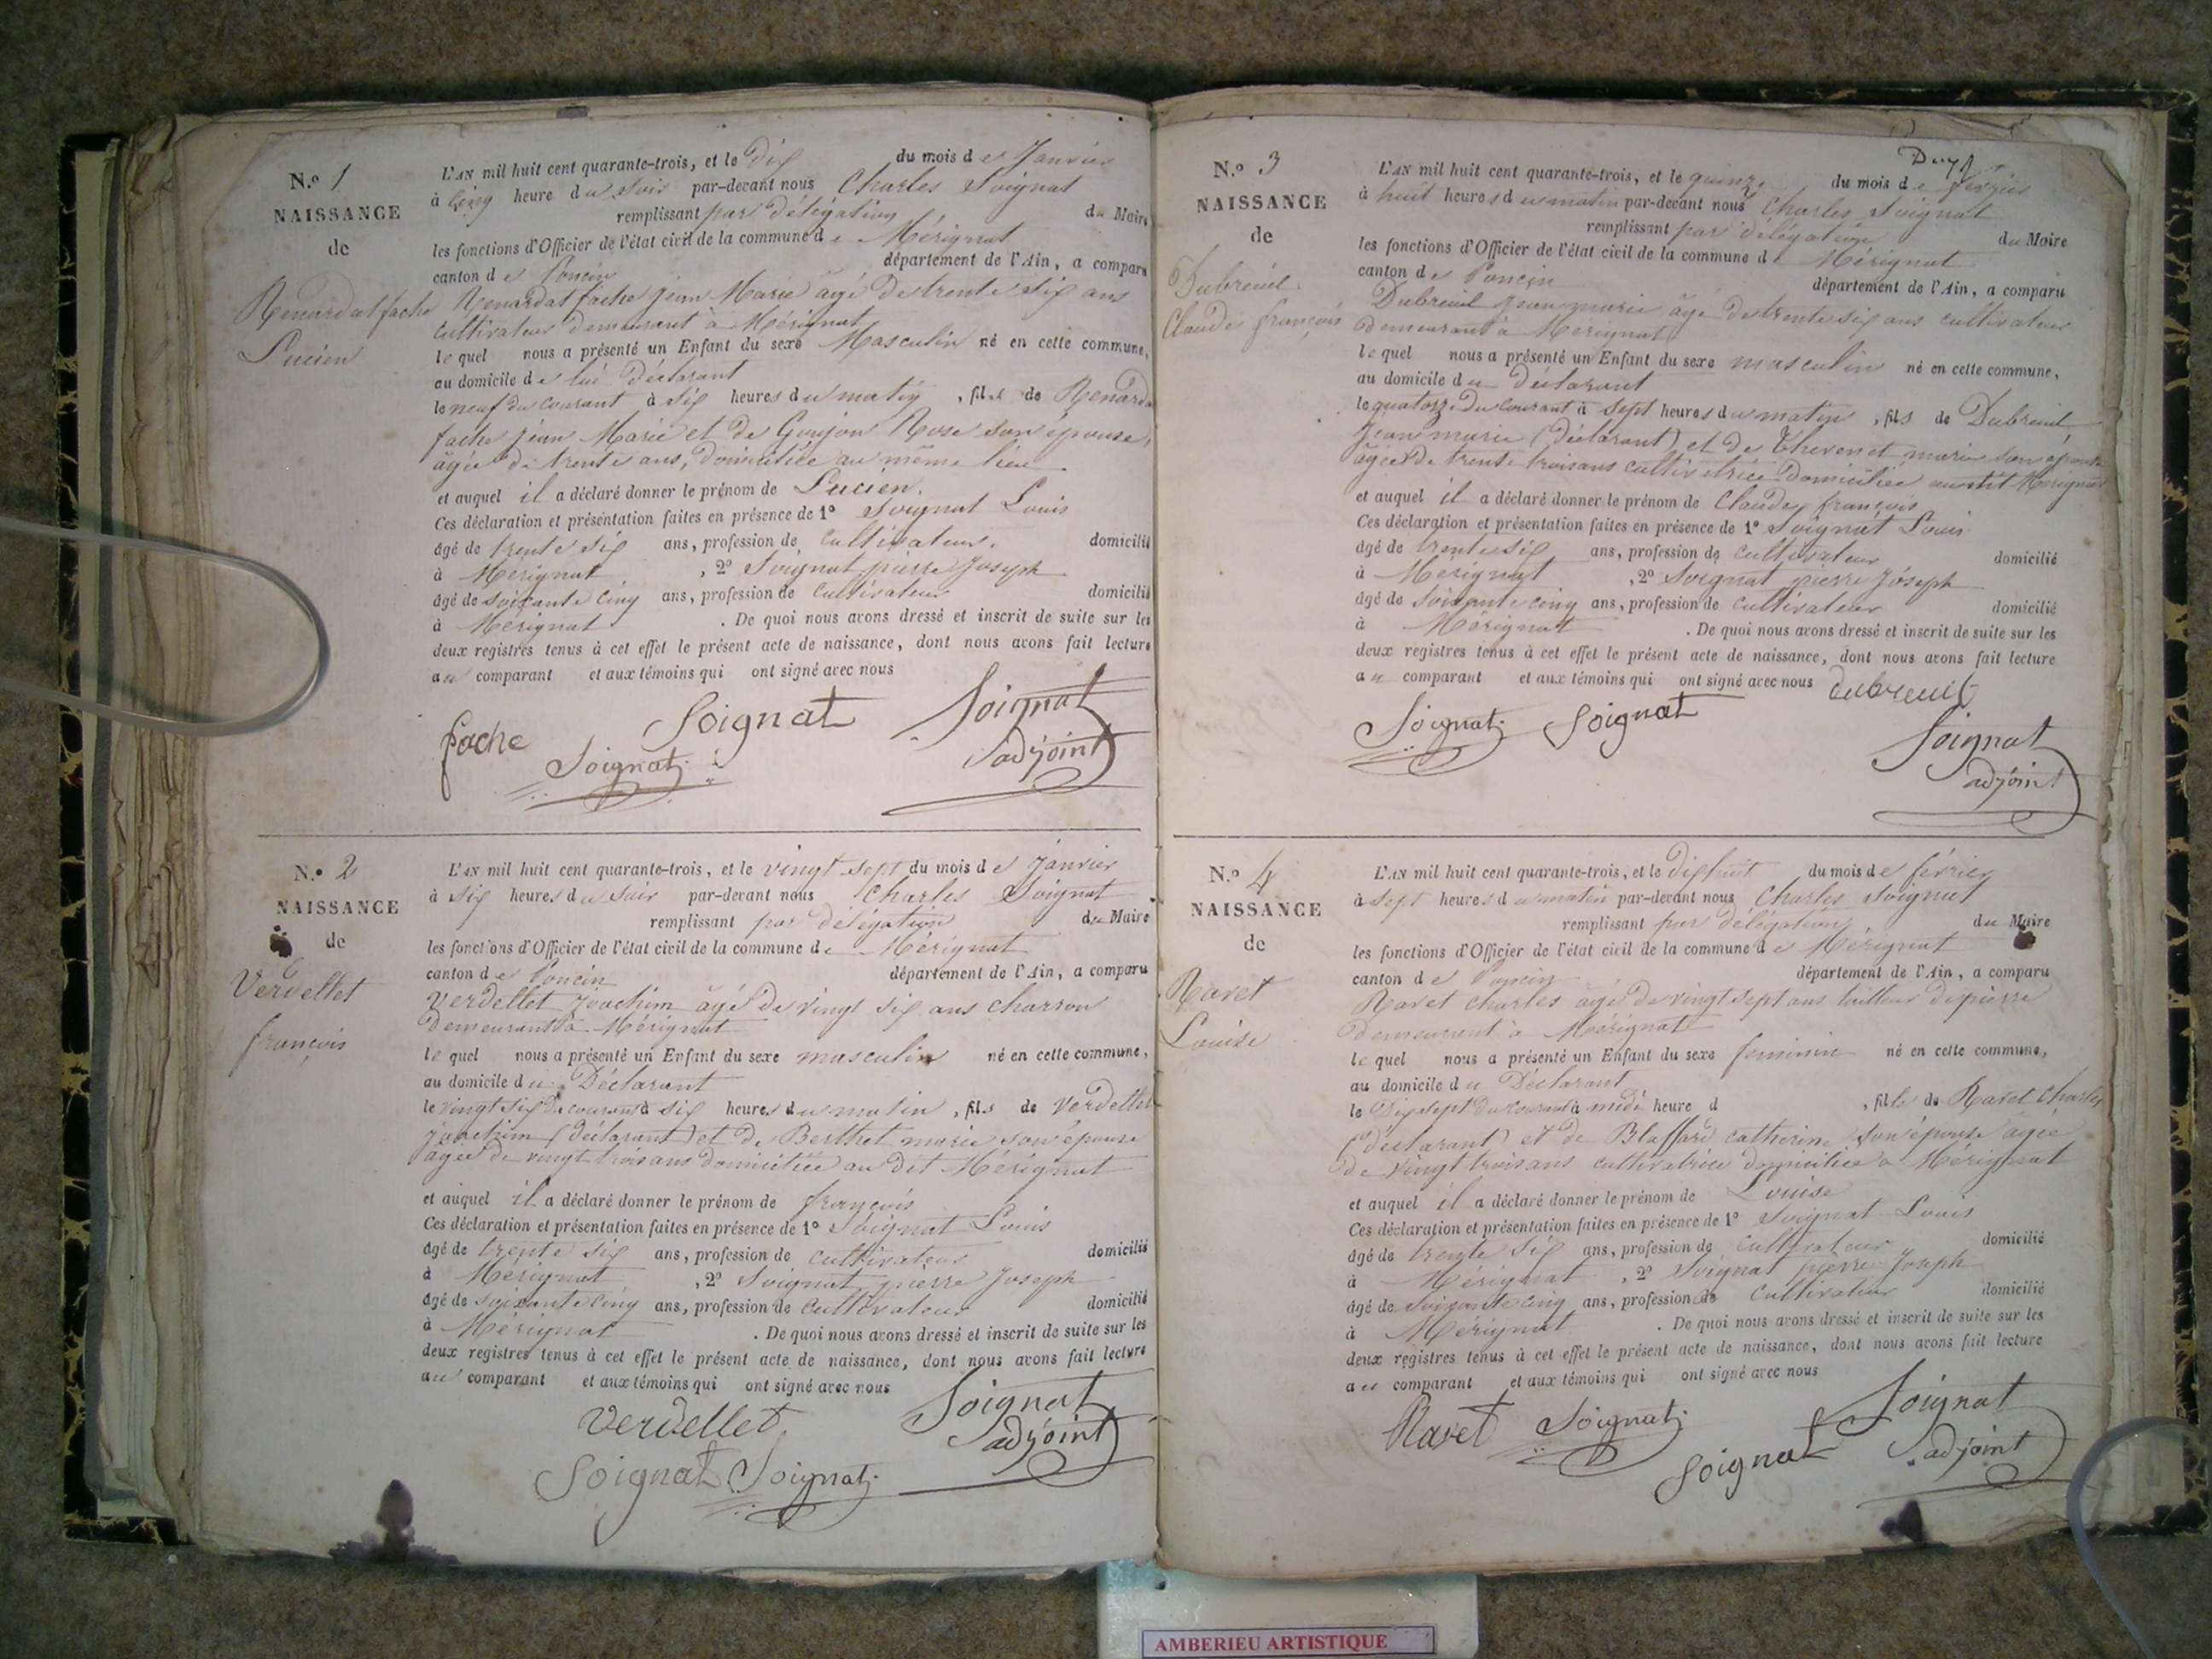 N.º 1
NAISSANCE
de
Renardat fache
Lucien
L'AN mil huit cent quarante-trois, et le Dix du mois de Janvier
à cinq heure du soir par-devant nous Charles Soignat
remplissant par délégation du Maire
les fonctions d'Officier de l'état civil de la commune de Mérignat
canton de Poncin département de l'Ain, a comparu
Renardat fache jean Marie âgé de trente six ans
cultivateur demeurant à Mérignat
lequel nous a présenté un Enfant du sexe Masculin né en cette commune,
au domicile de lui Déclarant
le neuf du courant à six heures du matin, fils de Renarda
fache jean Marie et de Goujon Rose son épouse,
âgée de trente ans, domiciliée au même lieu.
et auquel il a déclaré donner le prénom de Lucien.
Ces déclaration et présentation faites en présence de 1º Soignat Louis
âgé de trente six ans, profession de cultivateur. domicilié
à Mérignat, 2º Soignat pierre Joseph
âgé de soixante cinq ans, profession de cultivateur domicilié
à Mérignat. De quoi nous avons dressé et inscrit de suite sur les
deux registres tenus à cet effet le présent acte de naissance, dont nous avons fait lecture
au comparant et aux témoins qui ont signé avec nous
fache Soignat Soignat
Soignat adjoint
N.º 2
NAISSANCE
de
Verdellet
françois
L'AN mil huit cent quarante-trois, et le vingt sept du mois de janvier
à six heures du soir par-devant nous Charles Soignat
remplissant par délégation du Maire
les fonctions d'Officier de l'état civil de la commune de Mérignat
canton de Poncin département de l'Ain, a comparu
Verdellet Joachim âgé de vingt six ans charron
Demeurant à Mérignat
lequel nous a présenté un Enfant du sexe masculin né en cette commune,
au domicile du Déclarant
le vingt six du courant à six heures du matin, fils de Verdellet
joachim (déclarant) et de Berthet marie son épouse
âgée de vingt trois ans domiciliée au dit Mérignat
et auquel il a déclaré donner le prénom de françois
Ces déclaration et présentation faites en présence de 1º Soignat Louis
âgé de trente six ans, profession de cultivateur domicilié
à Mérignat, 2º Soignat pierre Joseph
âgé de soixante cinq ans, profession de cultivateur domicilié
à Mérignat. De quoi nous avons dressé et inscrit de suite sur les
deux registres tenus à cet effet le présent acte de naissance, dont nous avons fait lecture
au comparant et aux témoins qui ont signé avec nous
Verdellet Soignat
adjoint
Soignat Soignat
N.º 3
NAISSANCE
de
Dubreuil
Claude françois
L'AN mil huit cent quarante-trois, et le quinze du mois de février
à huit heures du matin par-devant nous Charles Soignat
remplissant par délégation du Maire
les fonctions d'Officier de l'état civil de la commune de Mérignat
canton de Poncin département de l'Ain, a comparu
Dubreuil jean marie âgé de trente six ans cultivateur
demeurant à Mérignat
lequel nous a présenté un Enfant du sexe masculin né en cette commune,
au domicile du Déclarant
le quatorze du courant à sept heures du matin, fils de Dubreuil
jean marie (déclarant) et de Thevenet marie son épouse
âgée de trente trois ans cultivatrice Domiciliée au dit Mérignat
et auquel il a déclaré donner le prénom de Claude françois
Ces déclaration et présentation faites en présence de 1º Soignat Louis
âgé de trente six ans, profession de cultivateur domicilié
à Mérignat, 2º Soignat pierre Joseph
âgé de soixante cinq ans, profession de cultivateur domicilié
à Mérignat. De quoi nous avons dressé et inscrit de suite sur les
deux registres tenus à cet effet le présent acte de naissance, dont nous avons fait lecture
au comparant et aux témoins qui ont signé avec nous dubreuil
Soignat Soignat Soignat
adjoint
N.º 4
NAISSANCE
de
Ravet
Louise
L'AN mil huit cent quarante-trois, et le dix huit du mois de février
à sept heures du matin par-devant nous Charles Soignat
remplissant par délégation du Maire
les fonctions d'Officier de l'état civil de la commune de Mérignat
canton de Poncin département de l'Ain, a comparu
Ravet charles âgé de vingt sept ans tailleur de pierre
demeurant à Mérignat
lequel nous a présenté un Enfant du sexe feminin né en cette commune,
au domicile du Déclarant
le Dix sept du courant à midi heure d, fille de Ravet Charles
(déclarant) et de Blaffard catherine son épouse âgée
de vingt trois ans cultivatrice domiciliée à Mérignat
et auquel il a déclaré donner le prénom de Louise
Ces déclaration et présentation faites en présence de 1º Soignat Louis
âgé de trente six ans, profession de cultivateur domicilié
à Mérignat, 2º Soignat pierre Joseph
âgé de soixante cinq ans, profession de cultivateur domicilié
à Mérignat. De quoi nous avons dressé et inscrit de suite sur les
deux registres tenus à cet effet le présent acte de naissance, dont nous avons fait lecture
au comparant et aux témoins qui ont signé avec nous
Ravet Soignat Soignat
Soignat adjoint
AMBERIEU ARTISTIQUE